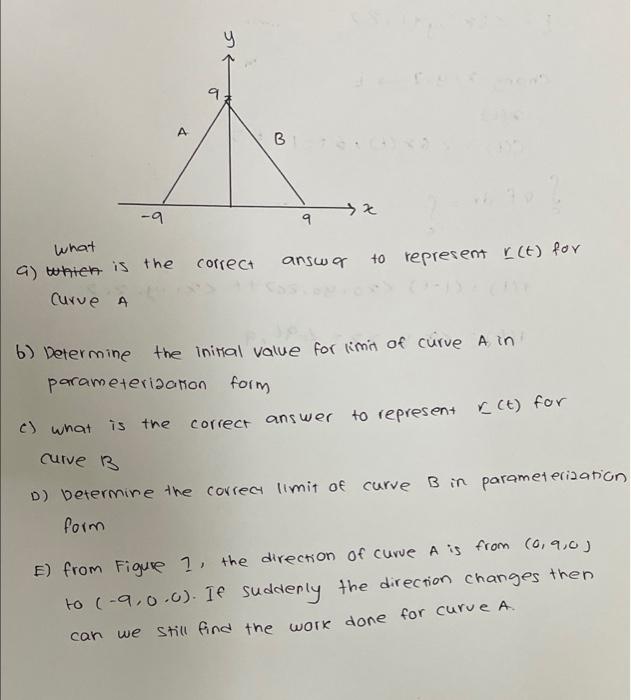 y
9
A
B
-9
9
x
what
a) which is the correct answer to represent r(t) for
curve A
b) Determine the initial value for limit of curve A in
parameterization form
c) what is the correct answer to represent r(t) for
curve B
D) Determine the correct limit of curve B in parameterization
form
E) from Figure 1, the direction of curve A is from (0,9,0)
to (-9,0.0). If suddenly the direction changes then
can we still find the work done for curve A.